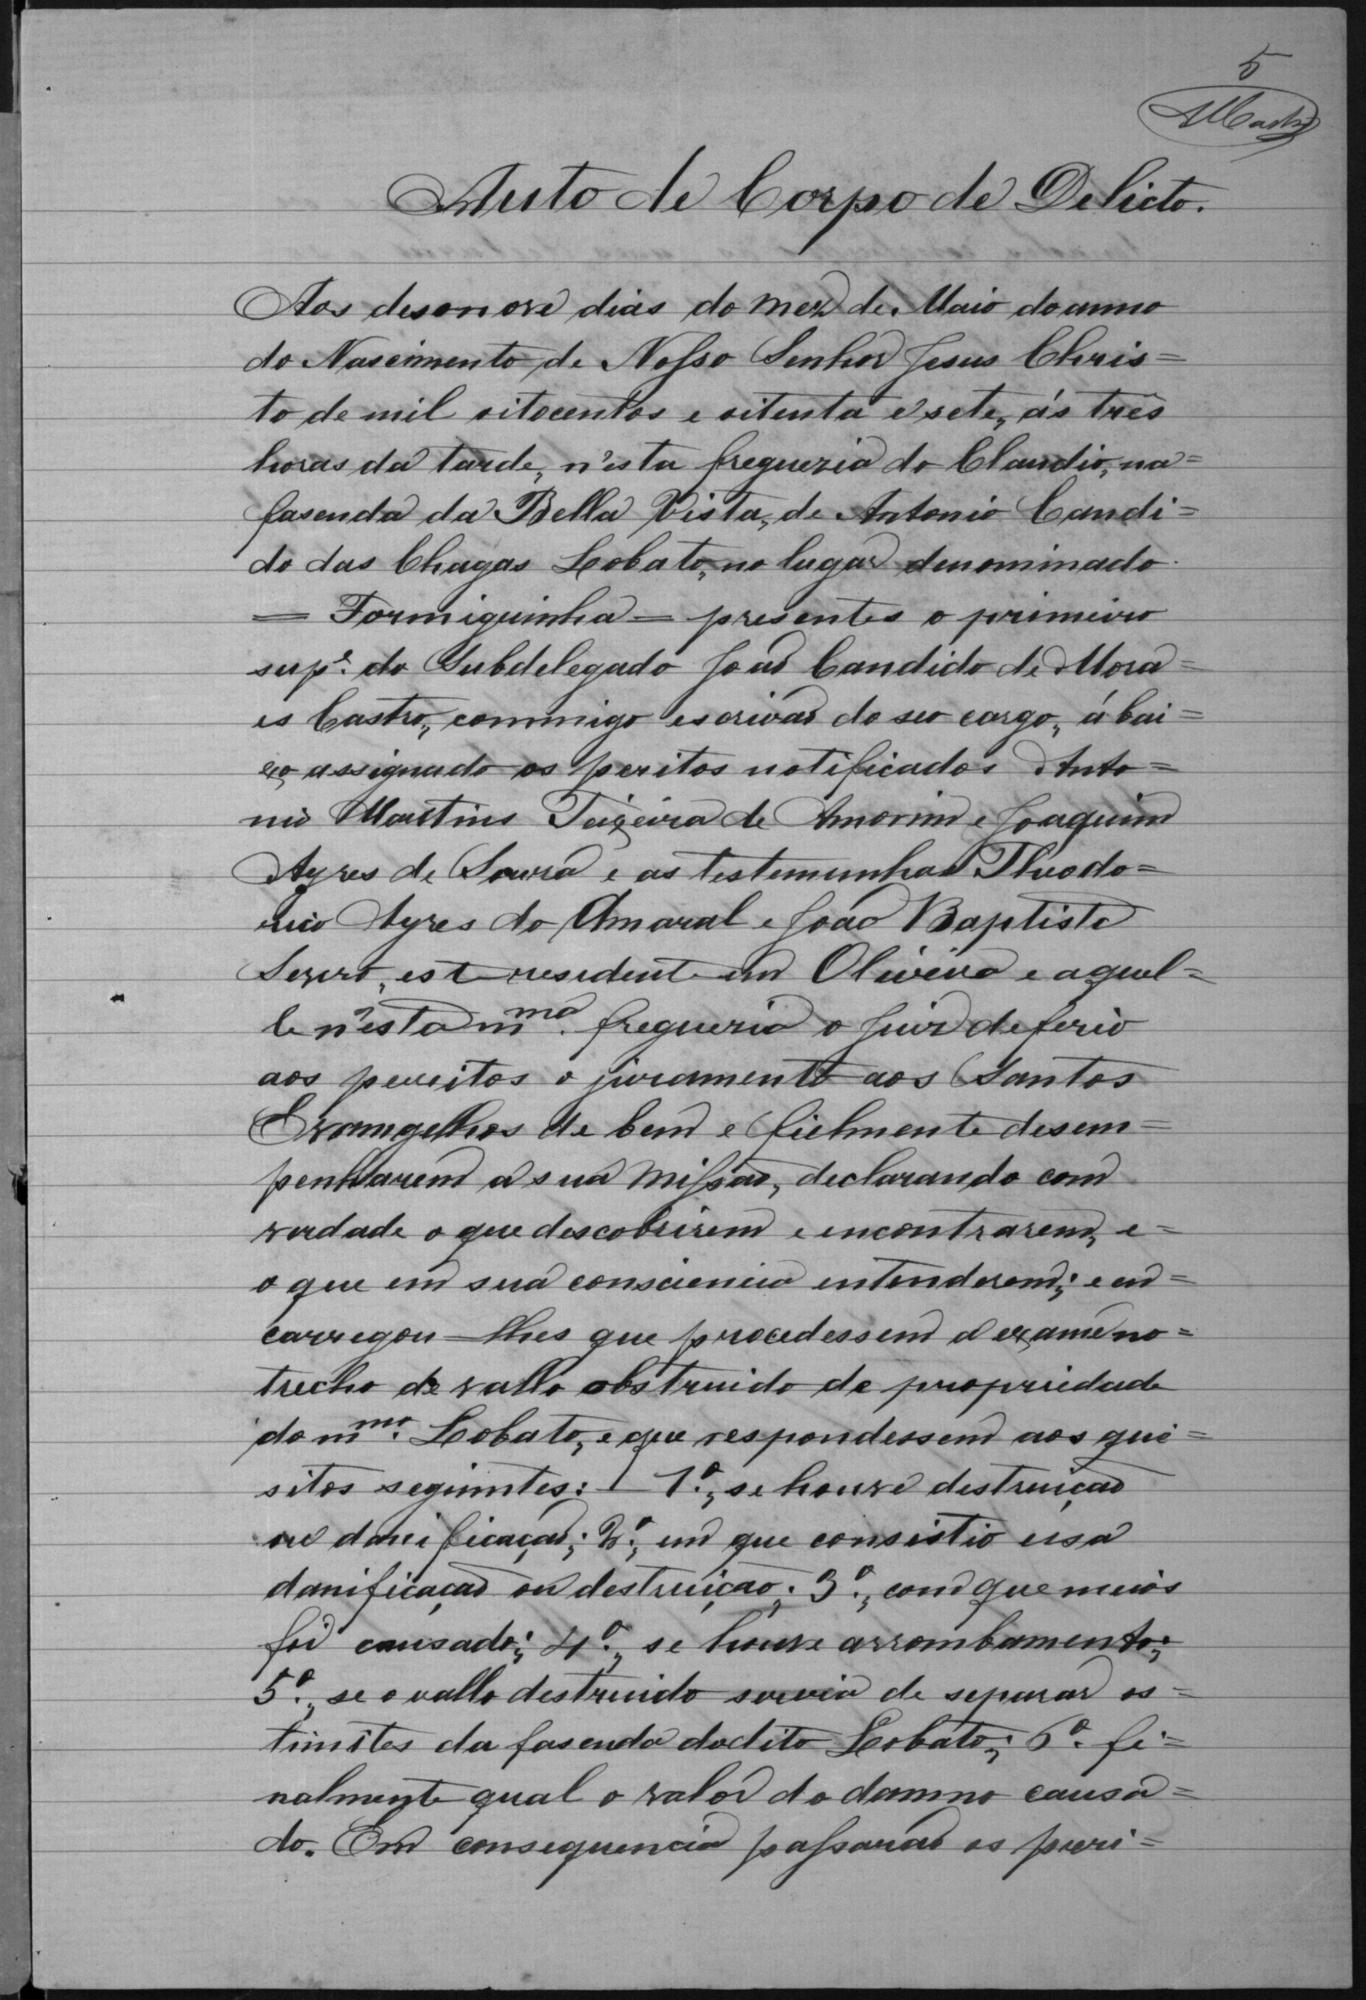 5
MCastro
Auto de Corpo de Delicto.
Aos desonove dias do mez de Maio do anno
do Nascimento de Nosso Senhor Jesus Chris=
to de mil oitocentos e oitenta e sete, ás três
horas da tarde, n'esta freguezia do Claudio, na=
fasenda da Bella Vista, de Antonio Candi=
do das Chagas Lobato, no lugar denominado
= Formiguinha = presentes o primeiro
supe. do Subdelegado João Candido de Mora=
es Castro, commigo escrivão do seo cargo, á bai=
xo, assignado os peritos notificados Anto=
nio Martins Teixeira de Amorim e Joaquim
Ayres de Souza e as testemunhas Theodo=
rico Ayres do Amaral e João Baptista
Serro, este residente em Oliveira e aquel=
le n'esta mma. freguezia o Juiz deferio
aos peritos o juramento aos Santos
Evangelhos de bem e fielmente desem=
penharem a sua missão, declarando com
verdade o que descobrirem e encontrarem, e=
o que em sua consciencia entenderem; e en=
carregou-lhes que procedessem a exame no=
trecho de vallo obstruido de propriedade
do mmo. Lobato, e que respondessem aos que=
sitos seguintes: 1º., se houve destruição
ou danificação; 2º., em que consistio essa
danificação ou destruição; 3º., com que meios
foi causado; 4º., se houve arrombamento;
5º., se o vallo destruido servia de separar os=
limites da fasenda do dito Lobato; 6º. fi=
nalmente qual o valor do damno causa=
do. Em consequencia passarão os peri=